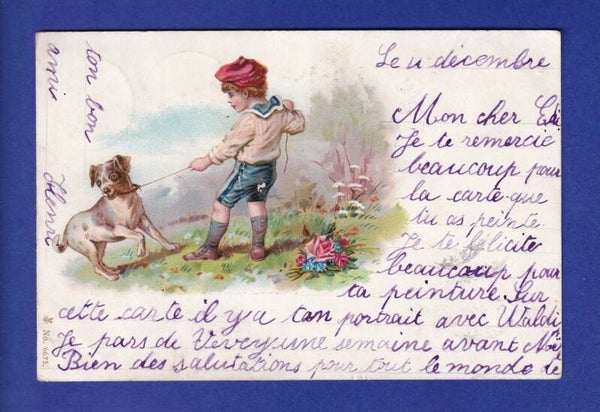 Le 11 décembre
Mon cher Eli
Je te remercie
beaucoup pour
la carte que
tu as peinte.
Je te félicite
beaucoup pour
ta peinture. Sur
cette carte il y a ton portrait avec Waldi
Je pars de Vevey une semaine avant
Bien des salutations pour tout le monde de
ton bon
ami
Henri
No. 6675.